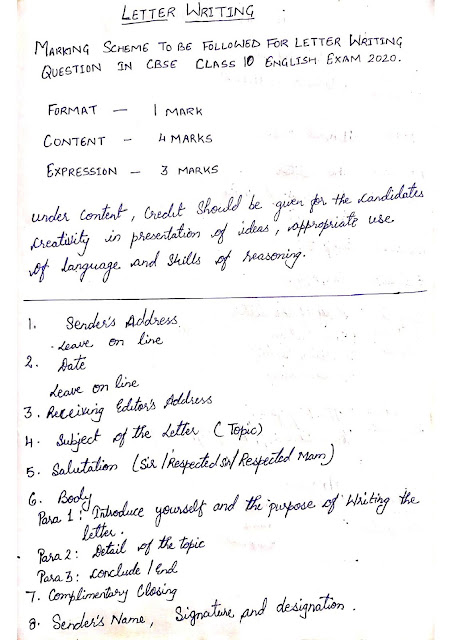 LETTER WRITING
MARKING SCHEME TO BE FOLLOWED FOR LETTER WRITING
QUESTION IN CBSE CLASS 10 ENGLISH EXAM 2020.
FORMAT — 1 MARK
CONTENT - 4 MARKS
EXPRESSION — 3 MARKS
under Content, Credit Should be given for the candidates
creativity in presentation of ideas, appropriate use
of language and skills of reasoning.
1. Sender's Address
Leave on line
2. Date
Leave on line
3. Receiving Editor's Address
4. Subject of the Letter (Topic)
5. Salutation (Sir/Respected Sir/Respected Mam)
6. Body
Para 1: Introduce yourself and the purpose of Writing the
letter.
Para 2: Detail of the topic
Para 3: Conclude/End
7. Complimentary Closing
8. Sender's Name, Signature and designation.